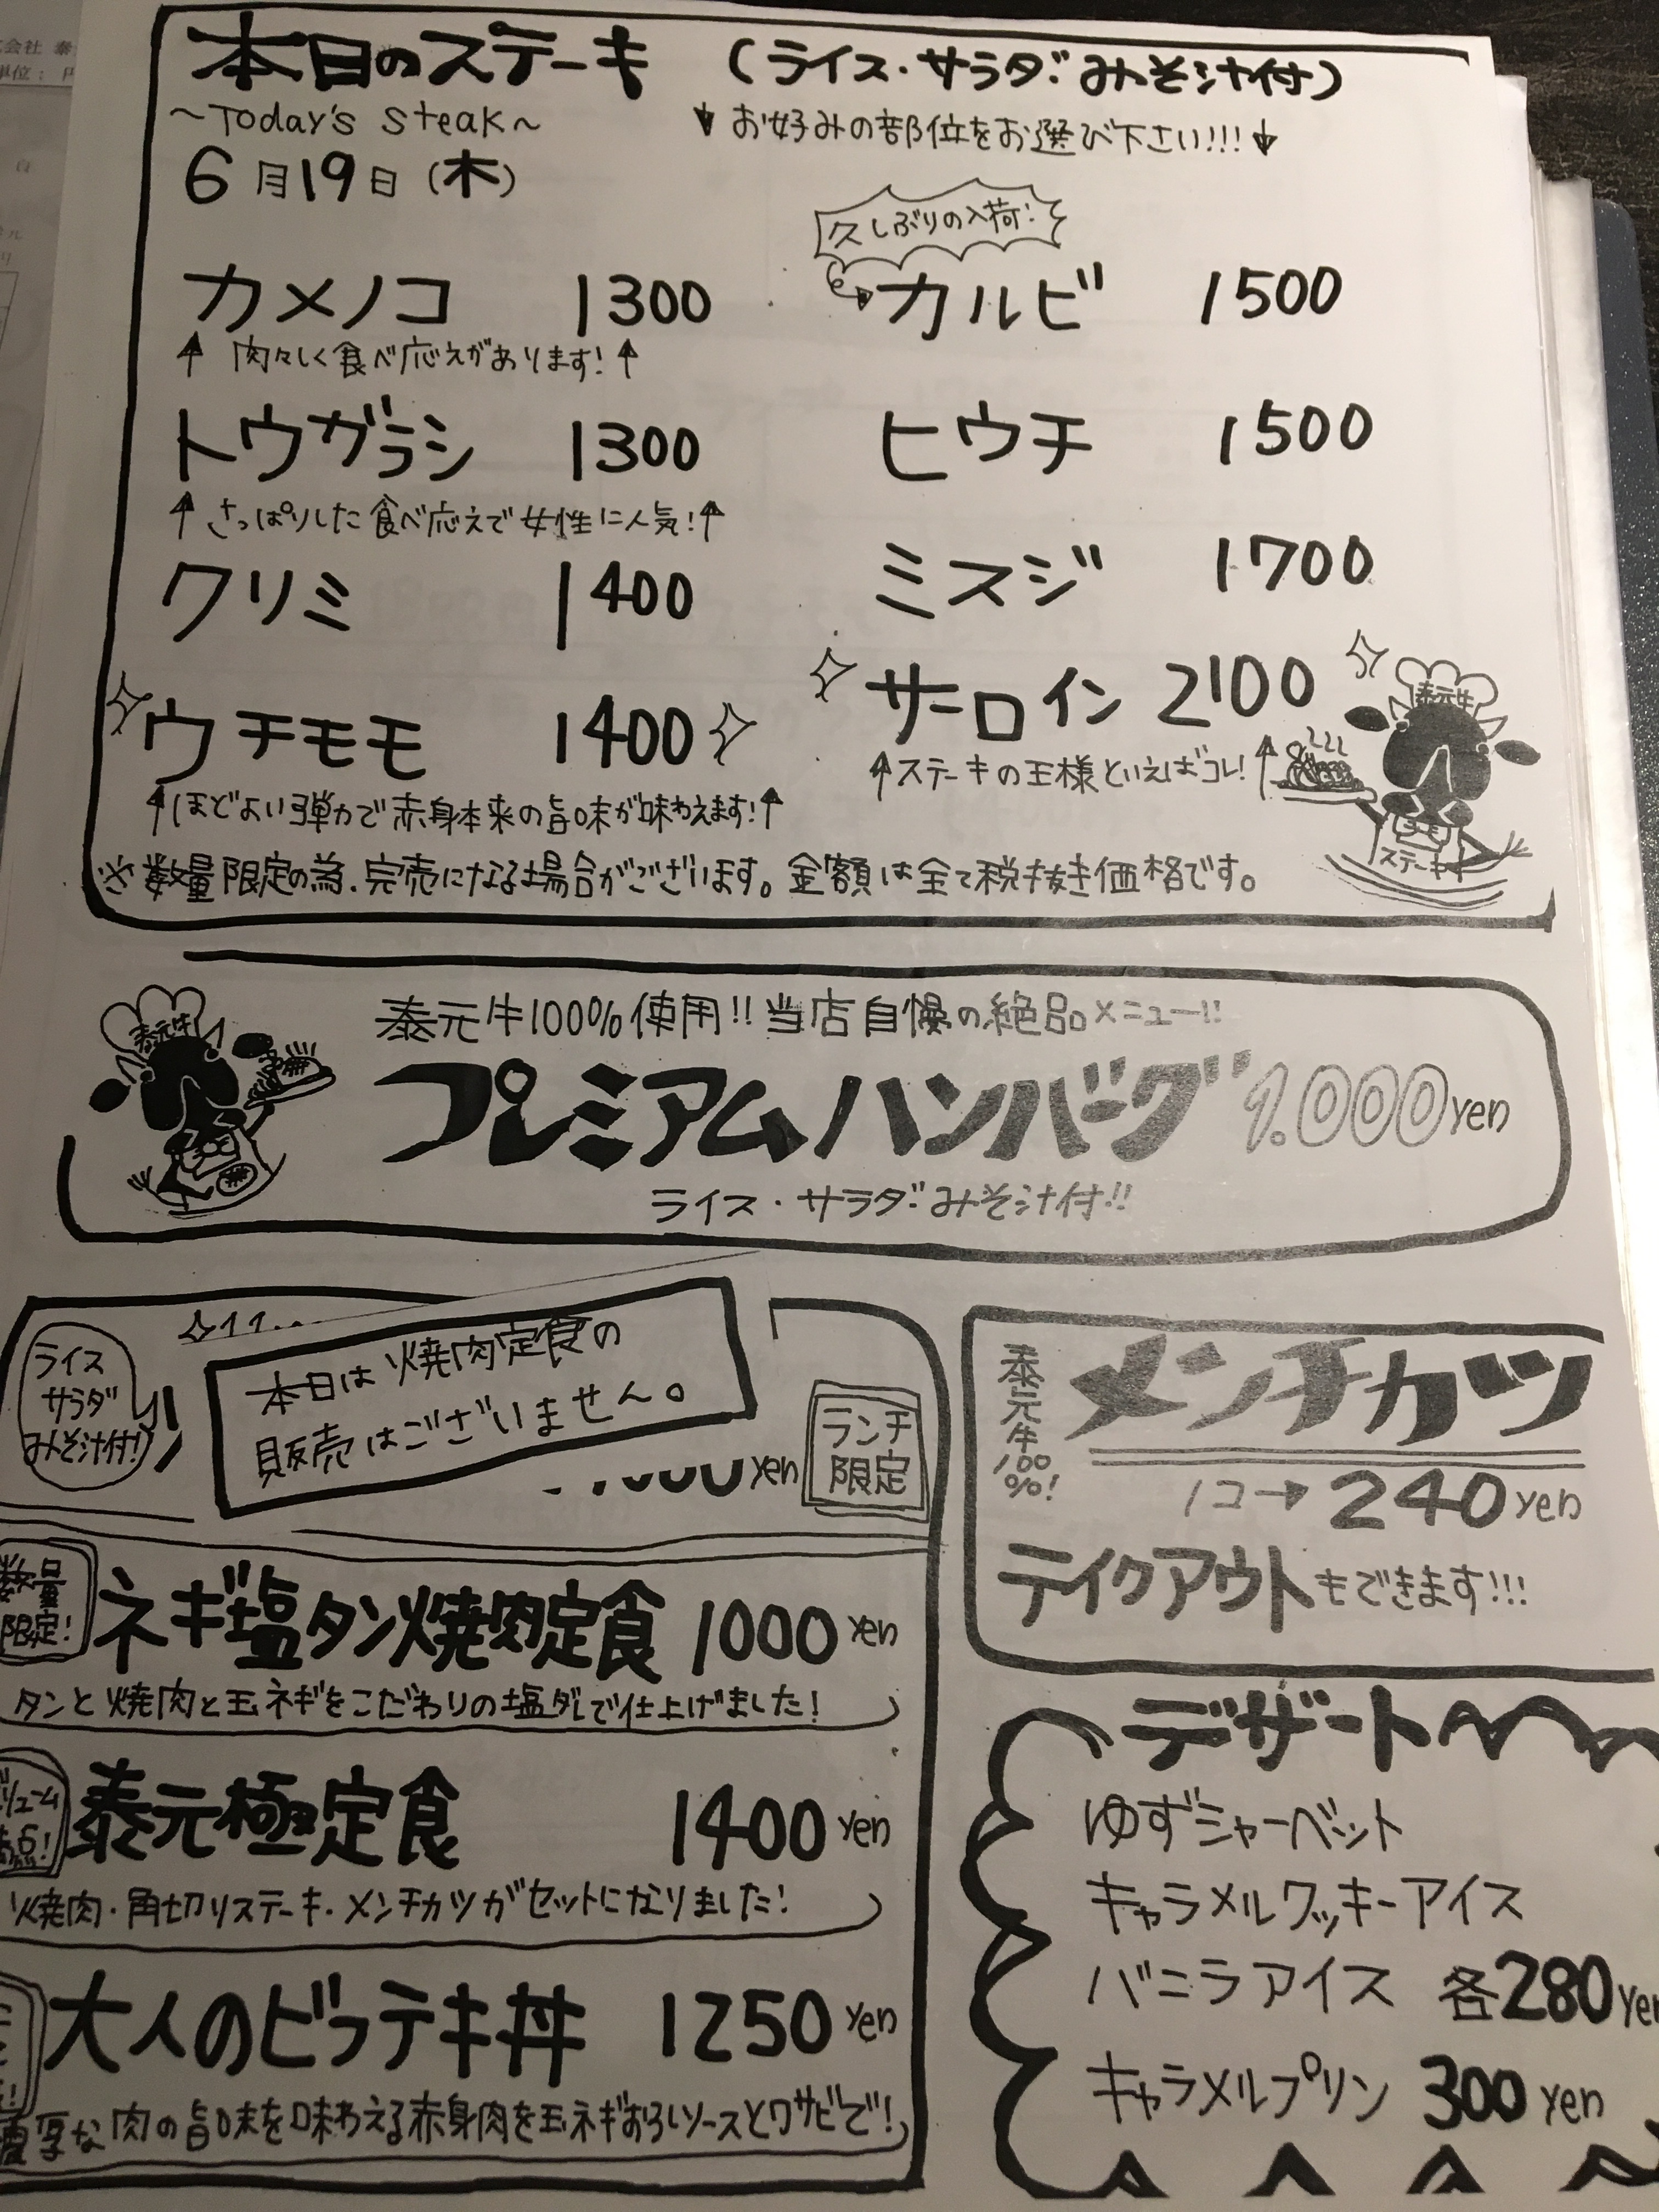 本日のステーキ (ライス・サラダ・みそ汁付)
~Today's steak~
お好みの部位をお選び下さい!!!
6月19日(木)
久しぶりの入荷!
カメノコ 1300
カルビ 1500
肉々しく食べ応えがあります!
トウガラシ 1300
ヒウチ 1500
さっぱりした食べ応えで女性に人気!
クリミ 1400
ミスジ 1700
ウチモモ 1400
サーロイン 2100
ほどよい弾力で赤身本来の旨味が味わえます!
ステーキの王様といえばコレ!
※数量限定の為、完売になる場合がございます。金額は全て税抜き価格です。
泰元牛
ステーキ
泰元牛100%使用!!当店自慢の絶品メニュー!!
プレミアムハンバーグ 1.000yen
ライス・サラダ・みそ汁付!!
泰元牛
ライス
サラダ
みそ汁付!
本日は焼肉定食の
販売はございません。
yen
ランチ
限定
数量
限定!
ネギ塩タン焼肉定食 1000yen
タンと焼肉と玉ネギをこだわりの塩ダレで仕上げました!
泰元極定食 1400yen
焼肉・角切りステーキ・メンチカツがセットになりました!
大人のビフテキ丼 1250yen
濃厚な肉の旨味を味わえる赤身肉を玉ネギおろしソースとワサビで!
泰元牛100%!
メンチカツ
1コ→240yen
テイクアウトもできます!!!
デザート
ゆずシャーベット
キャラメルクッキーアイス
バニラアイス 各280yen
キャラメルプリン 300yen